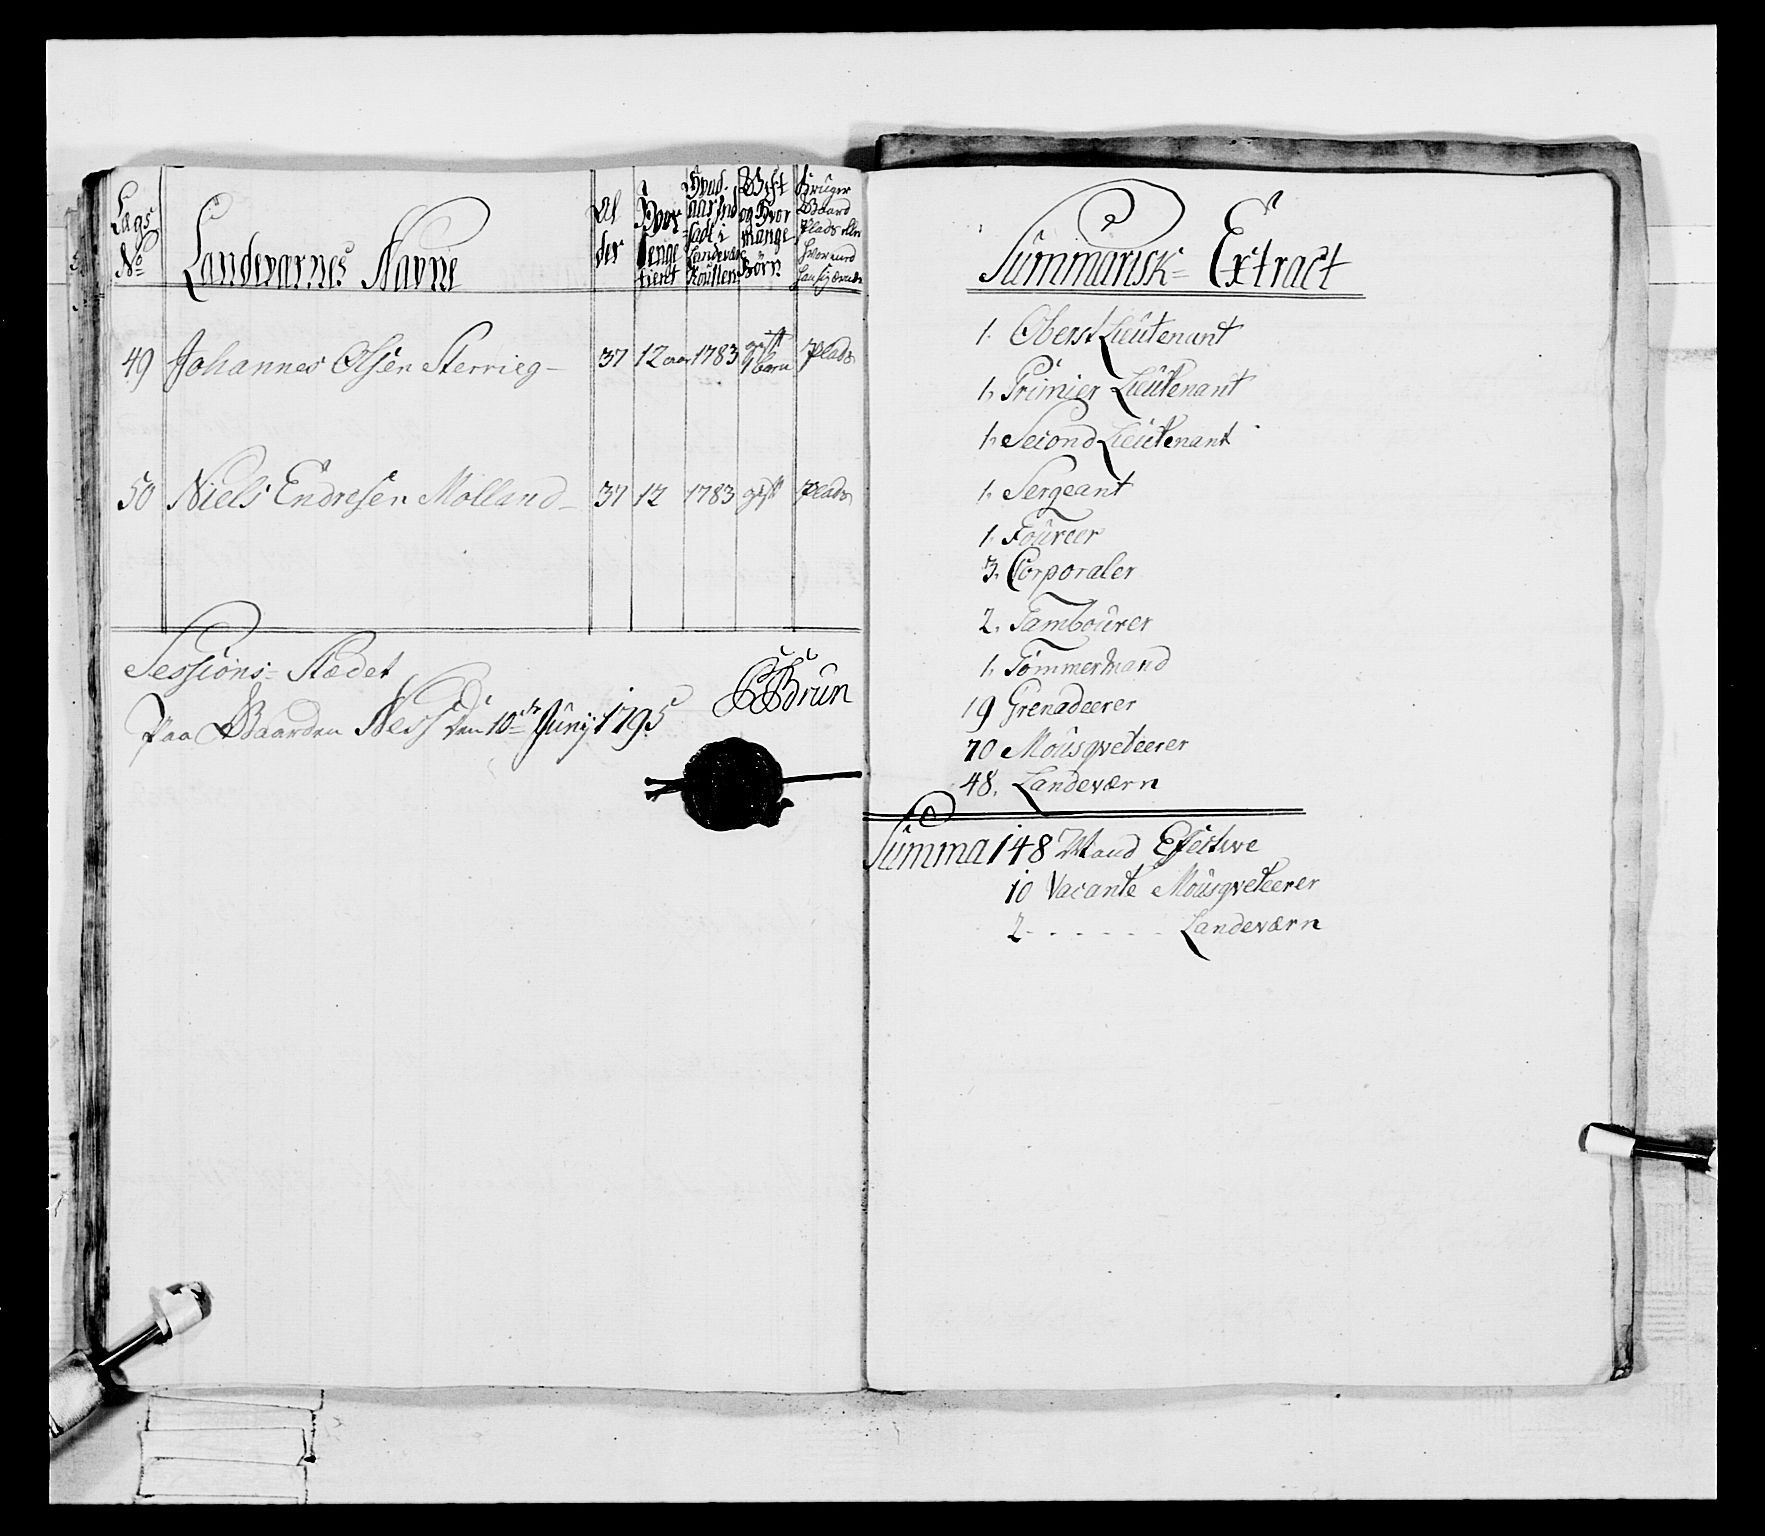 Lægs No
Landeværnes Navne
Al der
Hvor længe tient
Hvad aar Ind sadt i Landeværs Roullen
Gift og Hvor mange Börn
Bruger Gaard Plads eller Hvormed
49 Johannes Olsen Sterrieg - 37 12 aar 1783 gift 1 barn Plads
50 Niels Endresen Molland - 37 12 1783 gift Plads
Sessions=Stædet
Paa Gaarden Ness den 10de Junij 1795
Brun
Summarisk= Extract
1. Oberst Lieutenant
1. Primier Lieutenant
1. Second Lieutenant
1. Sergeant
1. Foureer
3. Corporaler
2. Tambourer
1. Tömmermand
19 Grenadeerer
70 Mousqveteerer
48. Landeværn
Summa 148 Mand Efective
10 Vacante Mousqveteerer
2 - - - - - - Landeværn